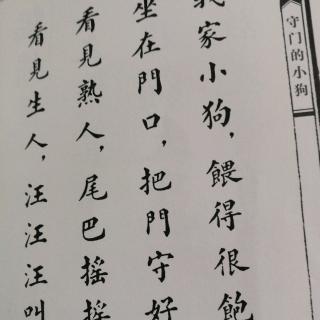 守门的小狗
我家小狗，餵得很飽
坐在門口，把門守好
看見熟人，尾巴搖搖
看見生人，汪汪汪叫